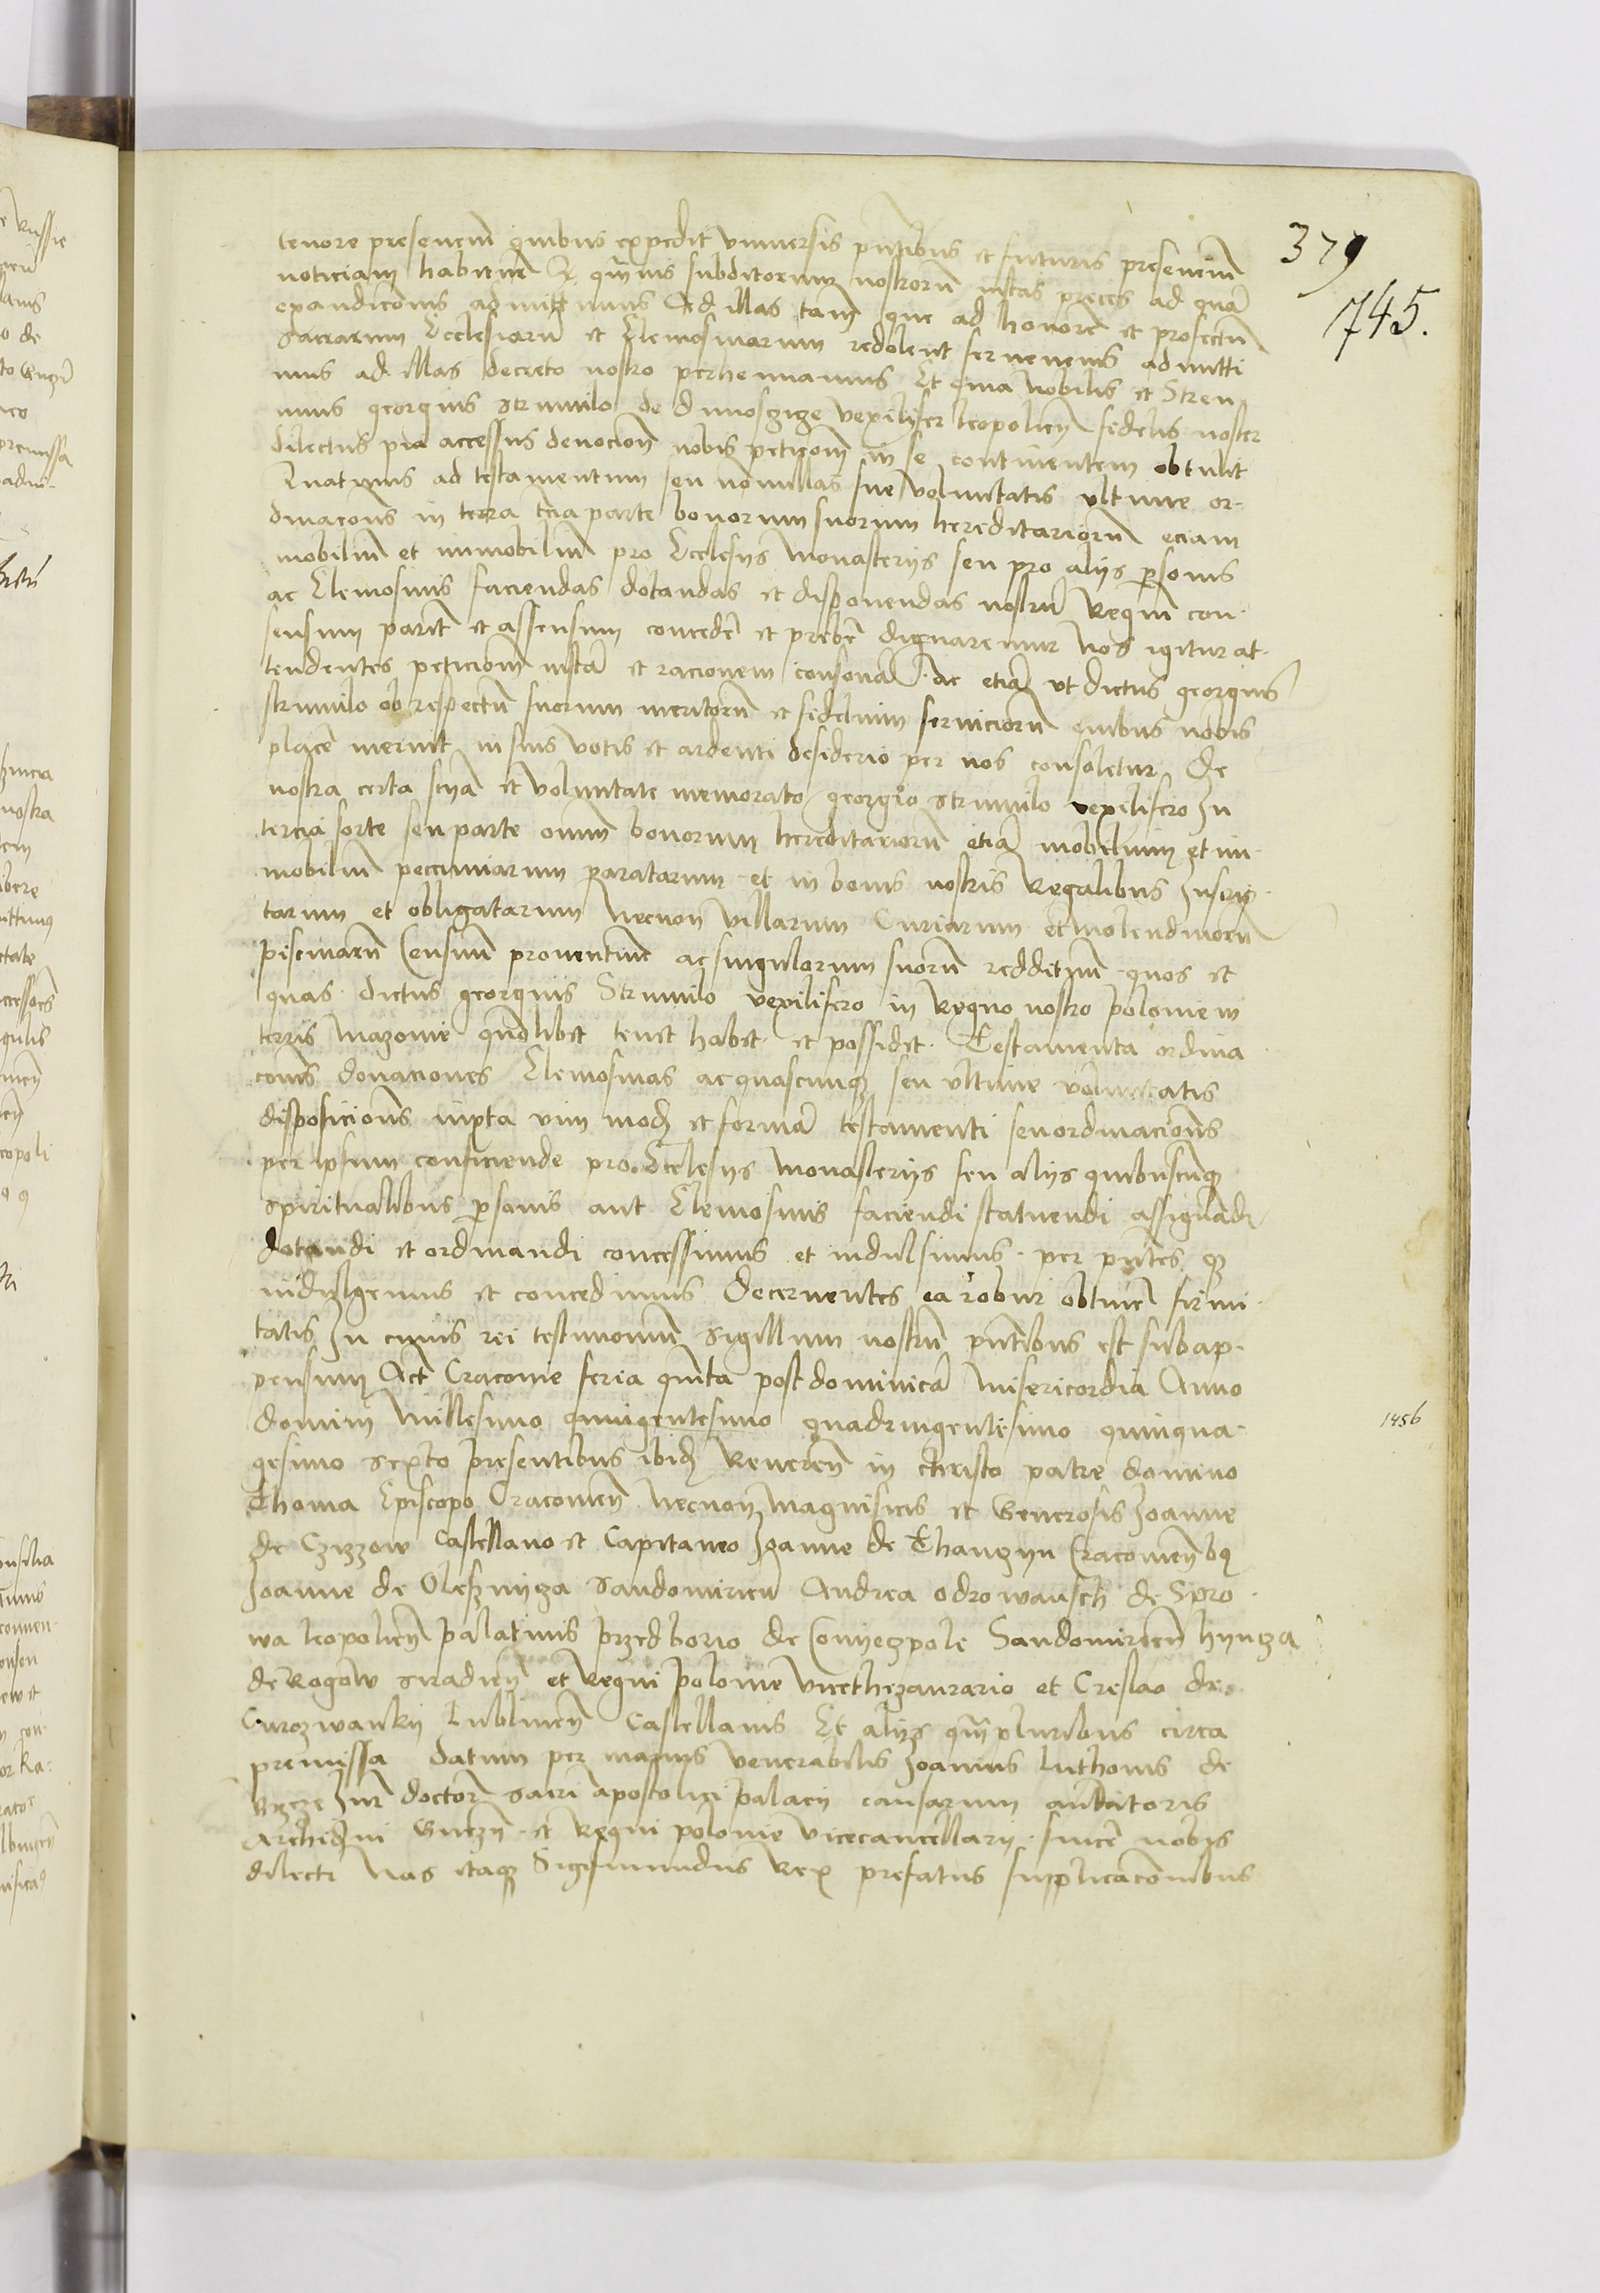 379
745.
tenore presencium quibus expedit universis pntibus et futuris presencium
noticiam habiturꝭ Q qmvis subditorum nostroru iustas preces ad quā
exaudicōnis admittimus Ad illas tam que ad honorē et profectū
sacrarum Ecclesiarū et Elemosinarum redolent fervencius admitti
mus ad illas decreto nostro perhennamus Et quia Nobilis et Stren
nuus georgius strumilo de dmoszicze vexilifer leopolien fidelis noster
dilectus pia accessus devocion nobis peticom in se continentem obtulit
Quatinus ad testamentum seu nonnullas sue voluntatis ultime or-
dinacons in terra tcia parte bonorum suorum hereditariorū eciam
mobiliu et immobiliu pro Ecclesiis Monasteriis seu pro aliis psonis
ac Elemosinis faciendas dotandas et disponendas nostrū Regiū con-
sensum parit et assensum concedē et prebē dignaremur Nos igitur at-
tendentes peticiom iustā et racionem consonā ac etiā ut dictus georgius
strumilo ob respectū suorum meritorū et fidelium serviciorū quibus nobis
placē meruit in suis votis et ardenti desiderio per nos consoletur De
nostra certa scya et voluntate memorato georgio strumilo vexilifero In
tercia sorte seu parte omnm bonorum hereditariorū etiā mobilium et im-
mobiliu pecuniarum paratarum et in bonis nostris Regalibus Inscrip-
tarum et obligatarum Necnon villarum Curiarum et molendinorū
piscinarū Censuū proventuū ac singulorum suorū reddituū quos et
quas dictus georgius Strumilo vexilifero in Regno nostro polonie in
terris Mazovie quolibet tenet habet et possidet Testamenta ordina
conis donaciones Elemosinas ac quascunq seu ultime voluntatis
disposicions iuxta vim mod et formā testamenti seu ordinacions
per ipsum conficiende pro Ecclesiis Monasteriis seu aliis quibuscunq
spiritualibus psonis aut Elemosinis faciendi statuendi assignādi
dotandi et ordinandi concessimus et indulsimus per pntes q
indulgemus et concedimus Decernentes ea robur obtinē firmi-
tatis In cuius rei testimoniū Sigillum nostrū pntibus est subap-
pensum Act Cracovie feria quīta post dominicā Misericordia Anno
domini Millesimo quingentesimo quadringentesimo quinqua-
1456
gesimo sexto presentibus ibid Reverēn in christo patre domino
Thoma Episcopo Cracovien Necnon Magnificis et Generosis Joanne
de Czizzow Castellano et Capitaneo Joanne de Thanczyn Cracovien bq
Joanne de Oleschnycza Sandomirien Andrea odrowansch de Spro-
wa leopolien palatinis przedborio de Conyeczpole Sandomirien hyncza
de Rogow siradien et Regni polonie vicethezaurario et Creslao de
Curozwanky Lublinen Castellanis Et aliis qmpluribus circa
premissa datum per manus venerabilis Joannis Luthonis de
Brzeze Jur doctor sacri apostolici palacii causarum auditoris
Archidni Gnezn et Regni polonie vicecancellarii sincē nobis
dilecti Nos itaq Sigismundus Rex prefatus supplicaconibus